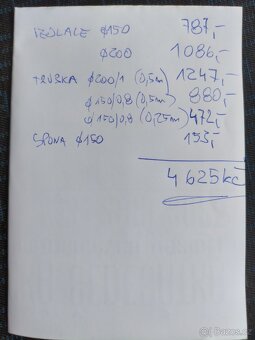 IZOLACE ⌀150 787,-
⌀200 1086,-
TRUBKA ⌀200/1 (0,5m) 1247,-
⌀150/0,8 (0,5m) 880,-
⌀150/0,8 (0,25m) 472,-
SPONA ⌀150 153,-
4625kč
Bazos.cz